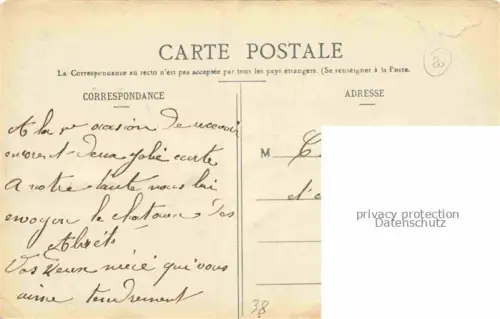 CARTE POSTALE
La Correspondance au recto n'est pas acceptée par tous les pays étrangers. (Se renseigner à la Poste.
CORRESPONDANCE
ADRESSE
A la occasion de recevoir
encore deux jolie carte
A notre tante nous lui
envoyon le chatau des
Abrets
Vos deux niéce qui vous
aime tendrement
M
privacy protection
Datenschutz
38